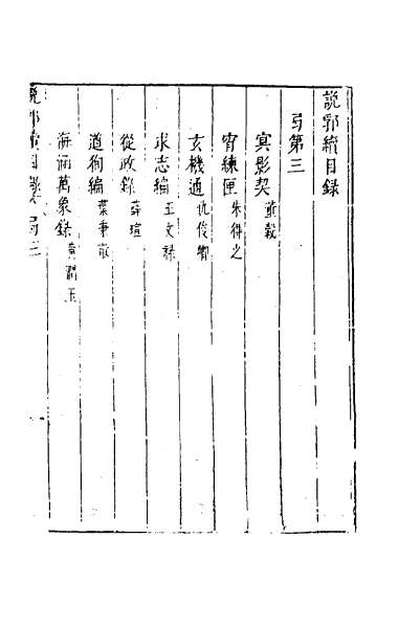 說郛續目錄
弓第三
冥影契 董穀
宵練匣 朱得之
玄機通 仇俊卿
求志編 王文祿
從政錄 薛瑄
道徇編 葉秉敬
海涵萬象錄 黃潤玉
說郛續目錄 弓三